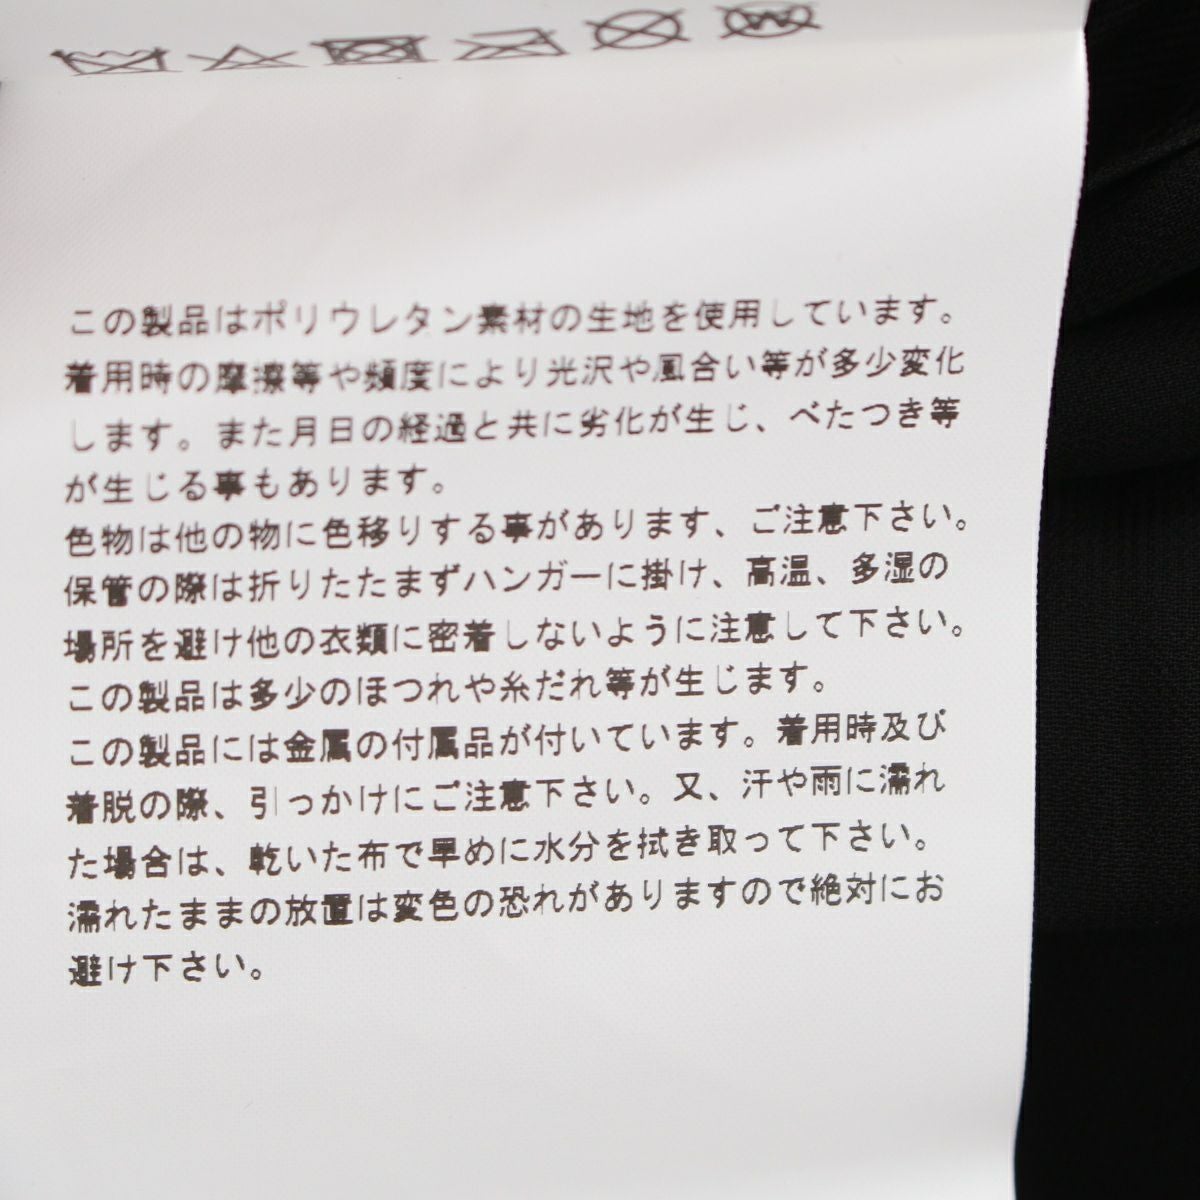 この製品はポリウレタン素材の生地を使用しています。
着用時の摩擦等や頻度により光沢や風合い等が多少変化
します。また月日の経過と共に劣化が生じ、べたつき等
が生じる事もあります。
色物は他の物に色移りする事があります、ご注意下さい。
保管の際は折りたたまずハンガーに掛け、高温、多湿の
場所を避け他の衣類に密着しないように注意して下さい。
この製品は多少のほつれや糸だれ等が生じます。
この製品には金属の付属品が付いています。着用時及び
着脱の際、引っかけにご注意下さい。又、汗や雨に濡れ
た場合は、乾いた布で早めに水分を拭き取って下さい。
濡れたままの放置は変色の恐れがありますので絶対にお
避け下さい。